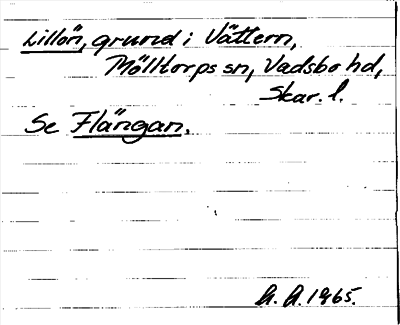 Lillön, grund i Vättern,
Mölltorps sn, Vadsbo hd,
Skar. l.
Se Flängan.
h. h. 1965.